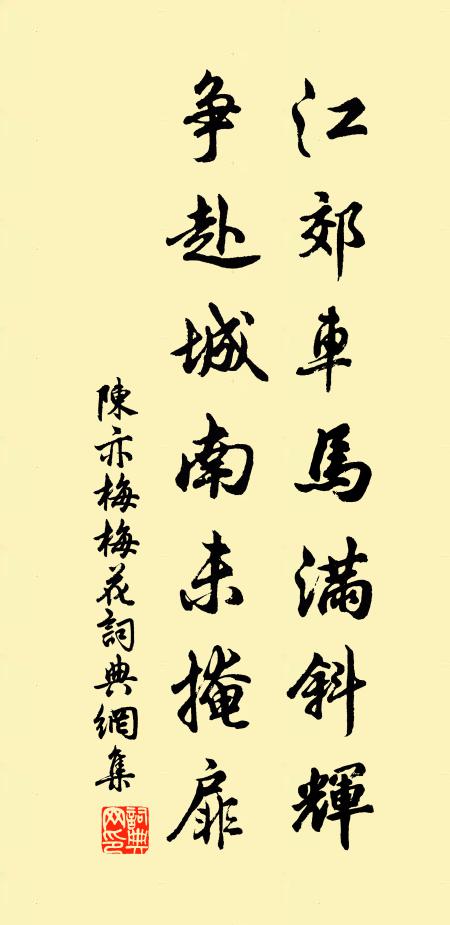 江郊車馬滿斜輝
争赴城南未掩扉
陳亦梅梅花詞典網集
詞典网印